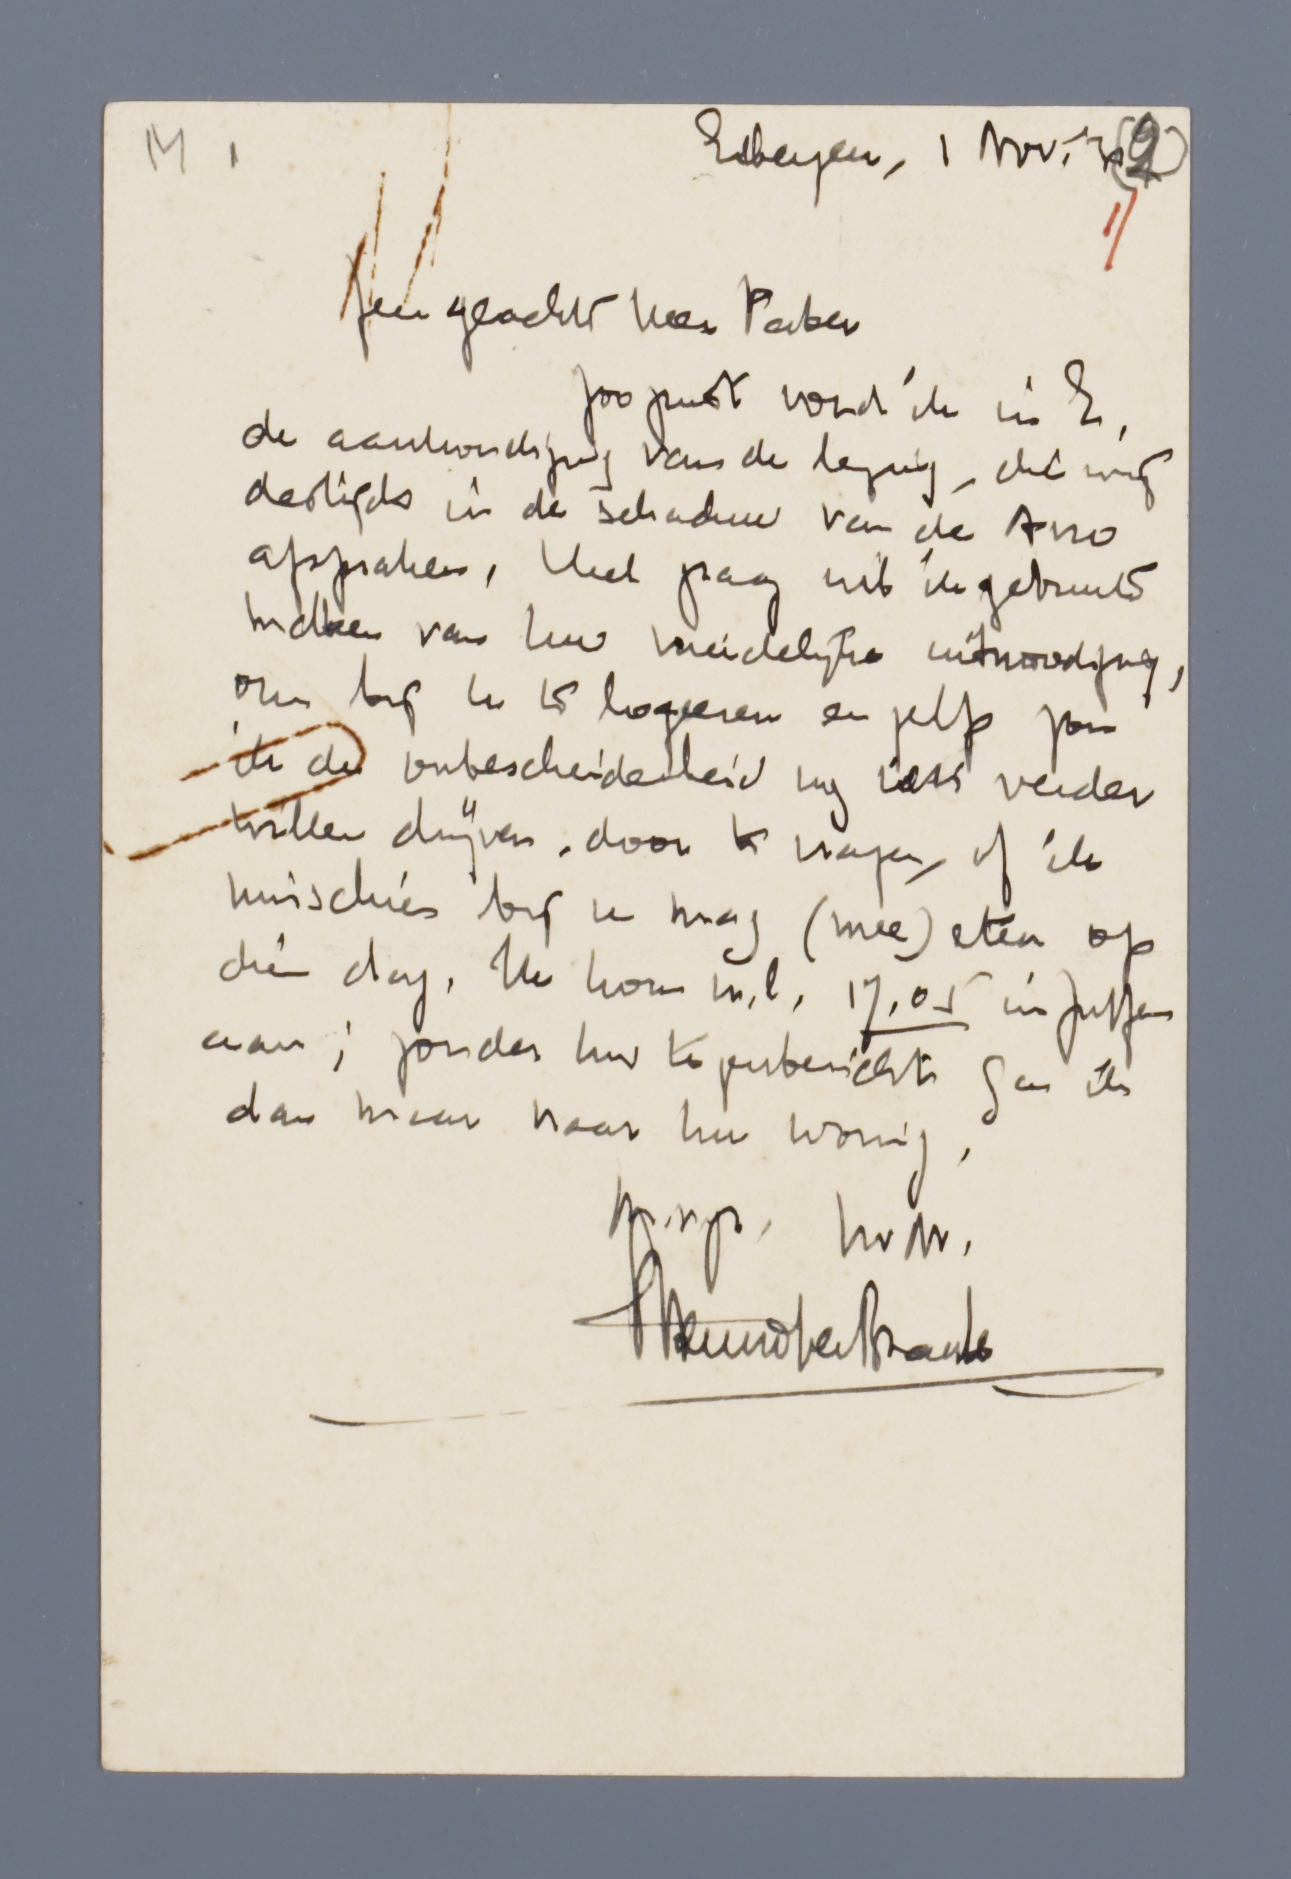 M 1
Eibergen, 1 Nov.
Zeer geachte heer Farber
Zoo juist vond ik in E.
de aankondiging van de lezing, die wij
destijds in de schaduw van de Arno
afspraken. Heel graag wil ik gebruik
maken van Uw vriendelijke uitnoodiging,
om bij U te logeeren en zelfs zou
ik de onbescheidenheid nog iets verder
willen drijven, door te vragen, of ik
misschien bij U mag (mee) eten op
dien dag. Ik kom n.l. 17.05 in Zutfen
aan; zonder Uw tegenbericht ga ik
dan maar naar Uw woning.
m. vr. gr. Uw
Menno ter Braak